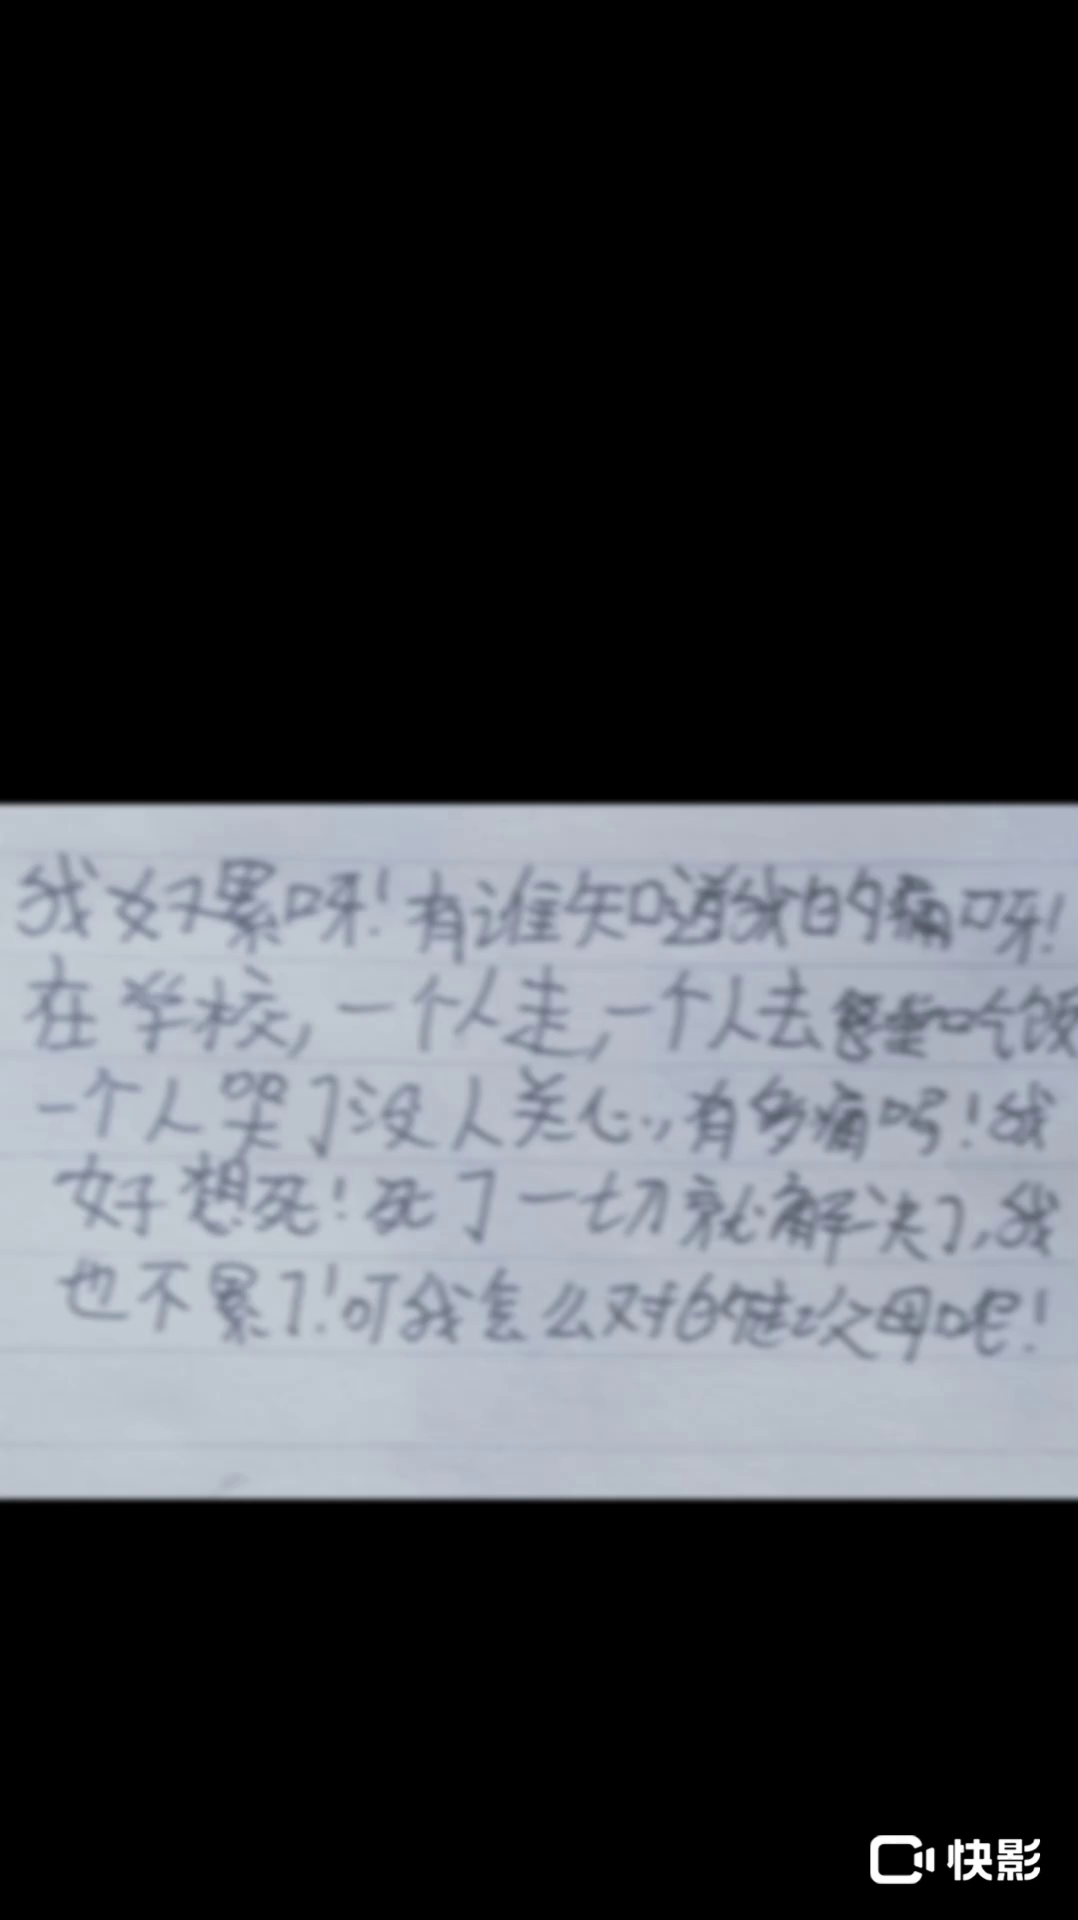 我好累呀！有谁知道我的痛呀！
在学校，一个人走，一个人去食堂吃饭
一个人哭了没人关心，有多痛吗！我
好想死！死了一切就解决了，我
也不累了！可我怎么对的起父母呢！
快影